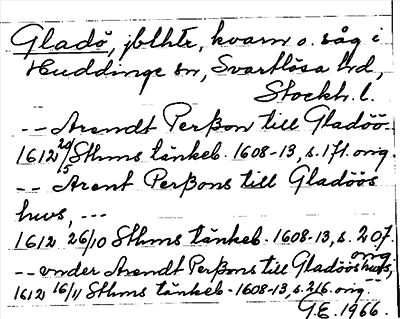 Gladö, jblhtr, kvarn o. såg i
Huddinge sn, Svartlösa hd,
Stockh. l.
-- Arendt Perßon till Gladöö
1612 20/5 Sthms tänkeb. 1608-13, s. 171. orig.
-- Arent Perßons till Gladöös
huus, ---
1612 26/10 Sthms tänkeb. 1608-13, s. 207.
orig.
-- onder Arendt Perßons till Gladöös huus, --
1612 16/11 Sthms tänkeb. 1608-13, s. 216. orig.
G.E. 1966.